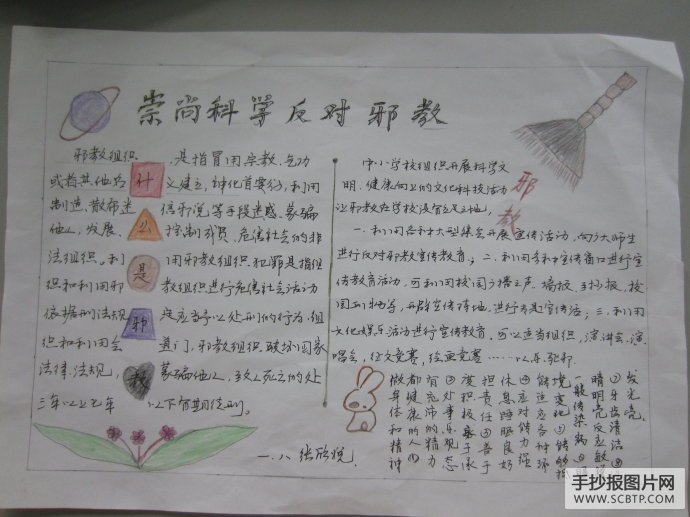 崇尚科学反对邪教
邪教组织 是指冒用宗教、气功
或者其他名 义建立,神化首要分, 利用
制造、散布迷 信邪说,等手段迷惑、蒙骗
他人,发展、 控制成员、危害社会的非
法组织。利 用邪教组织犯罪是指组
织和利用邪 教组织进行危害社会活动
依据刑法规 定应当予以处刑的行为,组
织和利用会 道门,邪教组织,破坏国家
法律、法规, 蒙骗他人,致人死亡的处
三年以上七年 以下有期徒刑。
什
么
是
邪
教
中小学校组织开展科学文
明、健康向上的文化科技活动
让邪教在学校没有立足之地,
邪
教
一、利用各种大型集会开展宣传活动,向广大师生
进行反对邪教宣传教育;二、利用各种宣传窗口进行宣
传教育活动,可利用校园广播之声、墙报、手抄报、校
园刊物等,开辟宣传阵地,进行专题宣传活;三、利用
文化娱乐活动进行宣传教育,可以适当组织,演讲会、演
唱会,征文竞赛,绘画竞赛……以乐驱邪.
发光亮、
②牙齿清洁
晴明亮反应敏
一般传染病⑦
境变化⑥能够抵
能适应各种环
休息睡眠良好
担责任③善于
度积极乐于承
②处事乐观态
有充沛的精力
都和
做身体和精神
一.八 张欣悦
手抄报图片网
WWW.SCBTP.COM